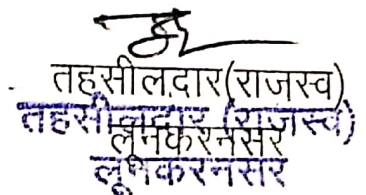 तहसीलदार(राजस्व)
तहसीलदार (राजस्व)
लूनकरनसर
लूनकरनसर